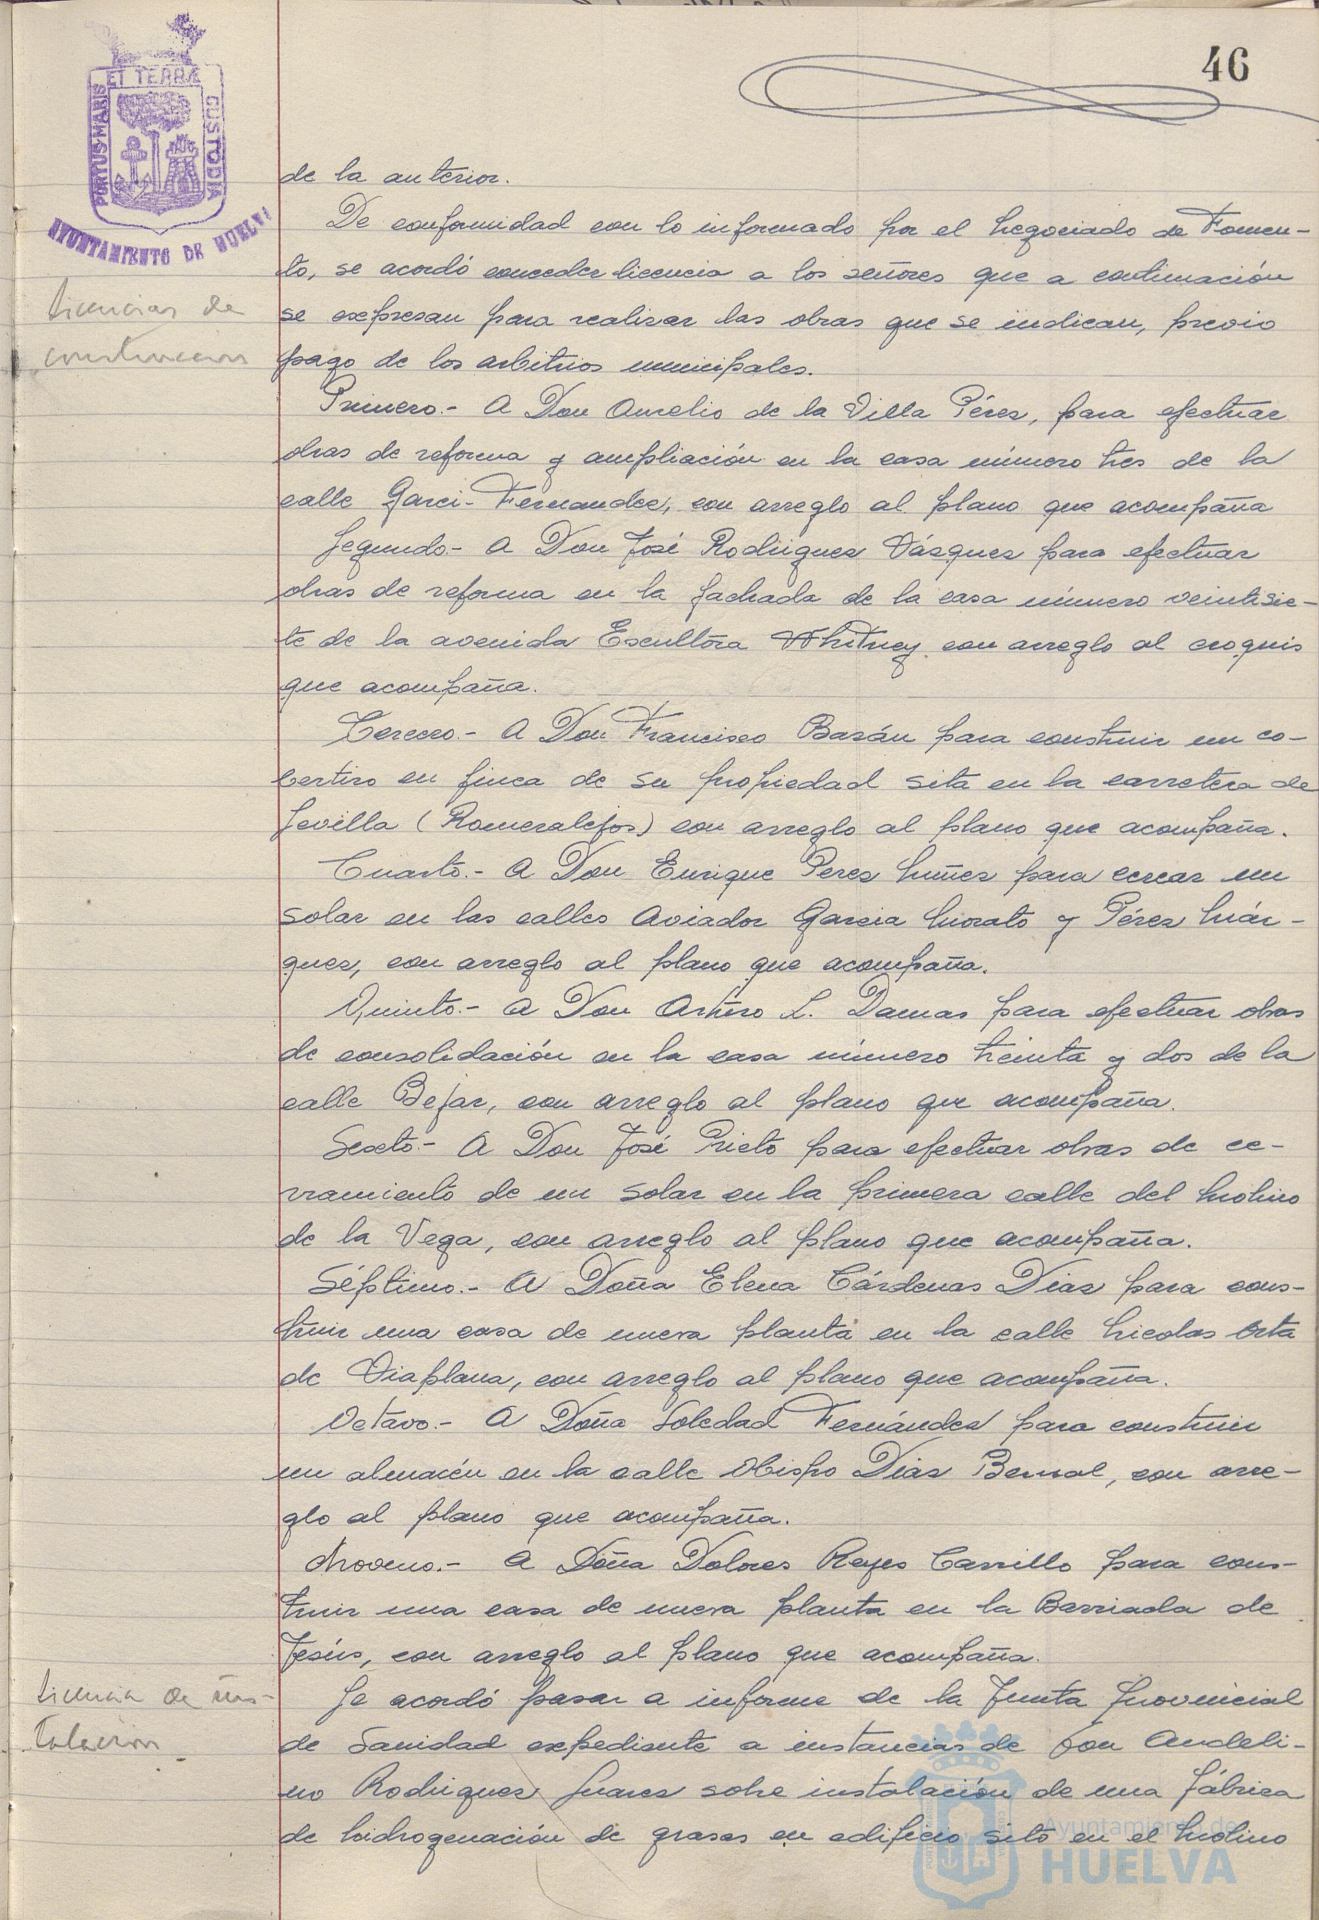 46
PORTUS MARIS
ET TERRÆ
CUSTODIA
AYUNTAMIENTO DE HUELVA
de la anterior.
De conformidad con lo informado por el Negociado de Fomen-
to, se acordó conceder licencia a los señores que a continuación
se expresan para realizar las obras que se indican, previo
pago de los arbitrios municipales.
Licencias de
construcción
Primero.- A Don Aurelio de la Villa Pérez, para efectuar
obras de reforma y ampliación en la casa número tres de la
calle Garci-Fernandez, con arreglo al plano que acompaña
Segundo.- A Don José Rodriguez Vázquez para efectuar
obras de reforma en la fachada de la casa número veintisie-
te de la avenida Escultora Whitney con arreglo al croquis
que acompaña.
Tercero.- A Don Francisco Bazán para construir un co-
bertizo en finca de su propiedad sita en la carretera de
Sevilla (Romeralejos) con arreglo al plano que acompaña.
Cuarto.- A Don Enrique Perez Nuñez para cercar un
solar en las calles Aviador Garcia Morato y Pérez Már-
quez, con arreglo al plano que acompaña.
Quinto.- A Don Arturo L. Damas para efectuar obras
de consolidación en la casa número treinta y dos de la
calle Bejar, con arreglo al plano que acompaña.
Sexto.- A Don José Prieto para efectuar obras de ce-
rramiento de un solar en la primera calle del Molino
de la Vega, con arreglo al plano que acompaña.
Séptimo.- A Doña Elena Cárdenas Diaz para cons-
truir una casa de nueva planta en la calle Nicolas Orta
de Viaplana, con arreglo al plano que acompaña.
Octavo.- A Doña Soledad Fernández para construir
un almacén en la calle Obispo Diaz Bernal, con arre-
glo al plano que acompaña.
Noveno.- A Doña Dolores Reyes Carrillo para cons-
truir una casa de nueva planta en la Barriada de
Jesús, con arreglo al plano que acompaña.
Licencia de ins-
talación
Se acordó pasar a informe de la Junta Provincial
de Sanidad expediente a instancias de Don Andeli-
no Rodriguez Juarez sobre instalación de una fábrica
de hidrogenación de grasas en edificio sito en el Molino
Ayuntamiento de
HUELVA